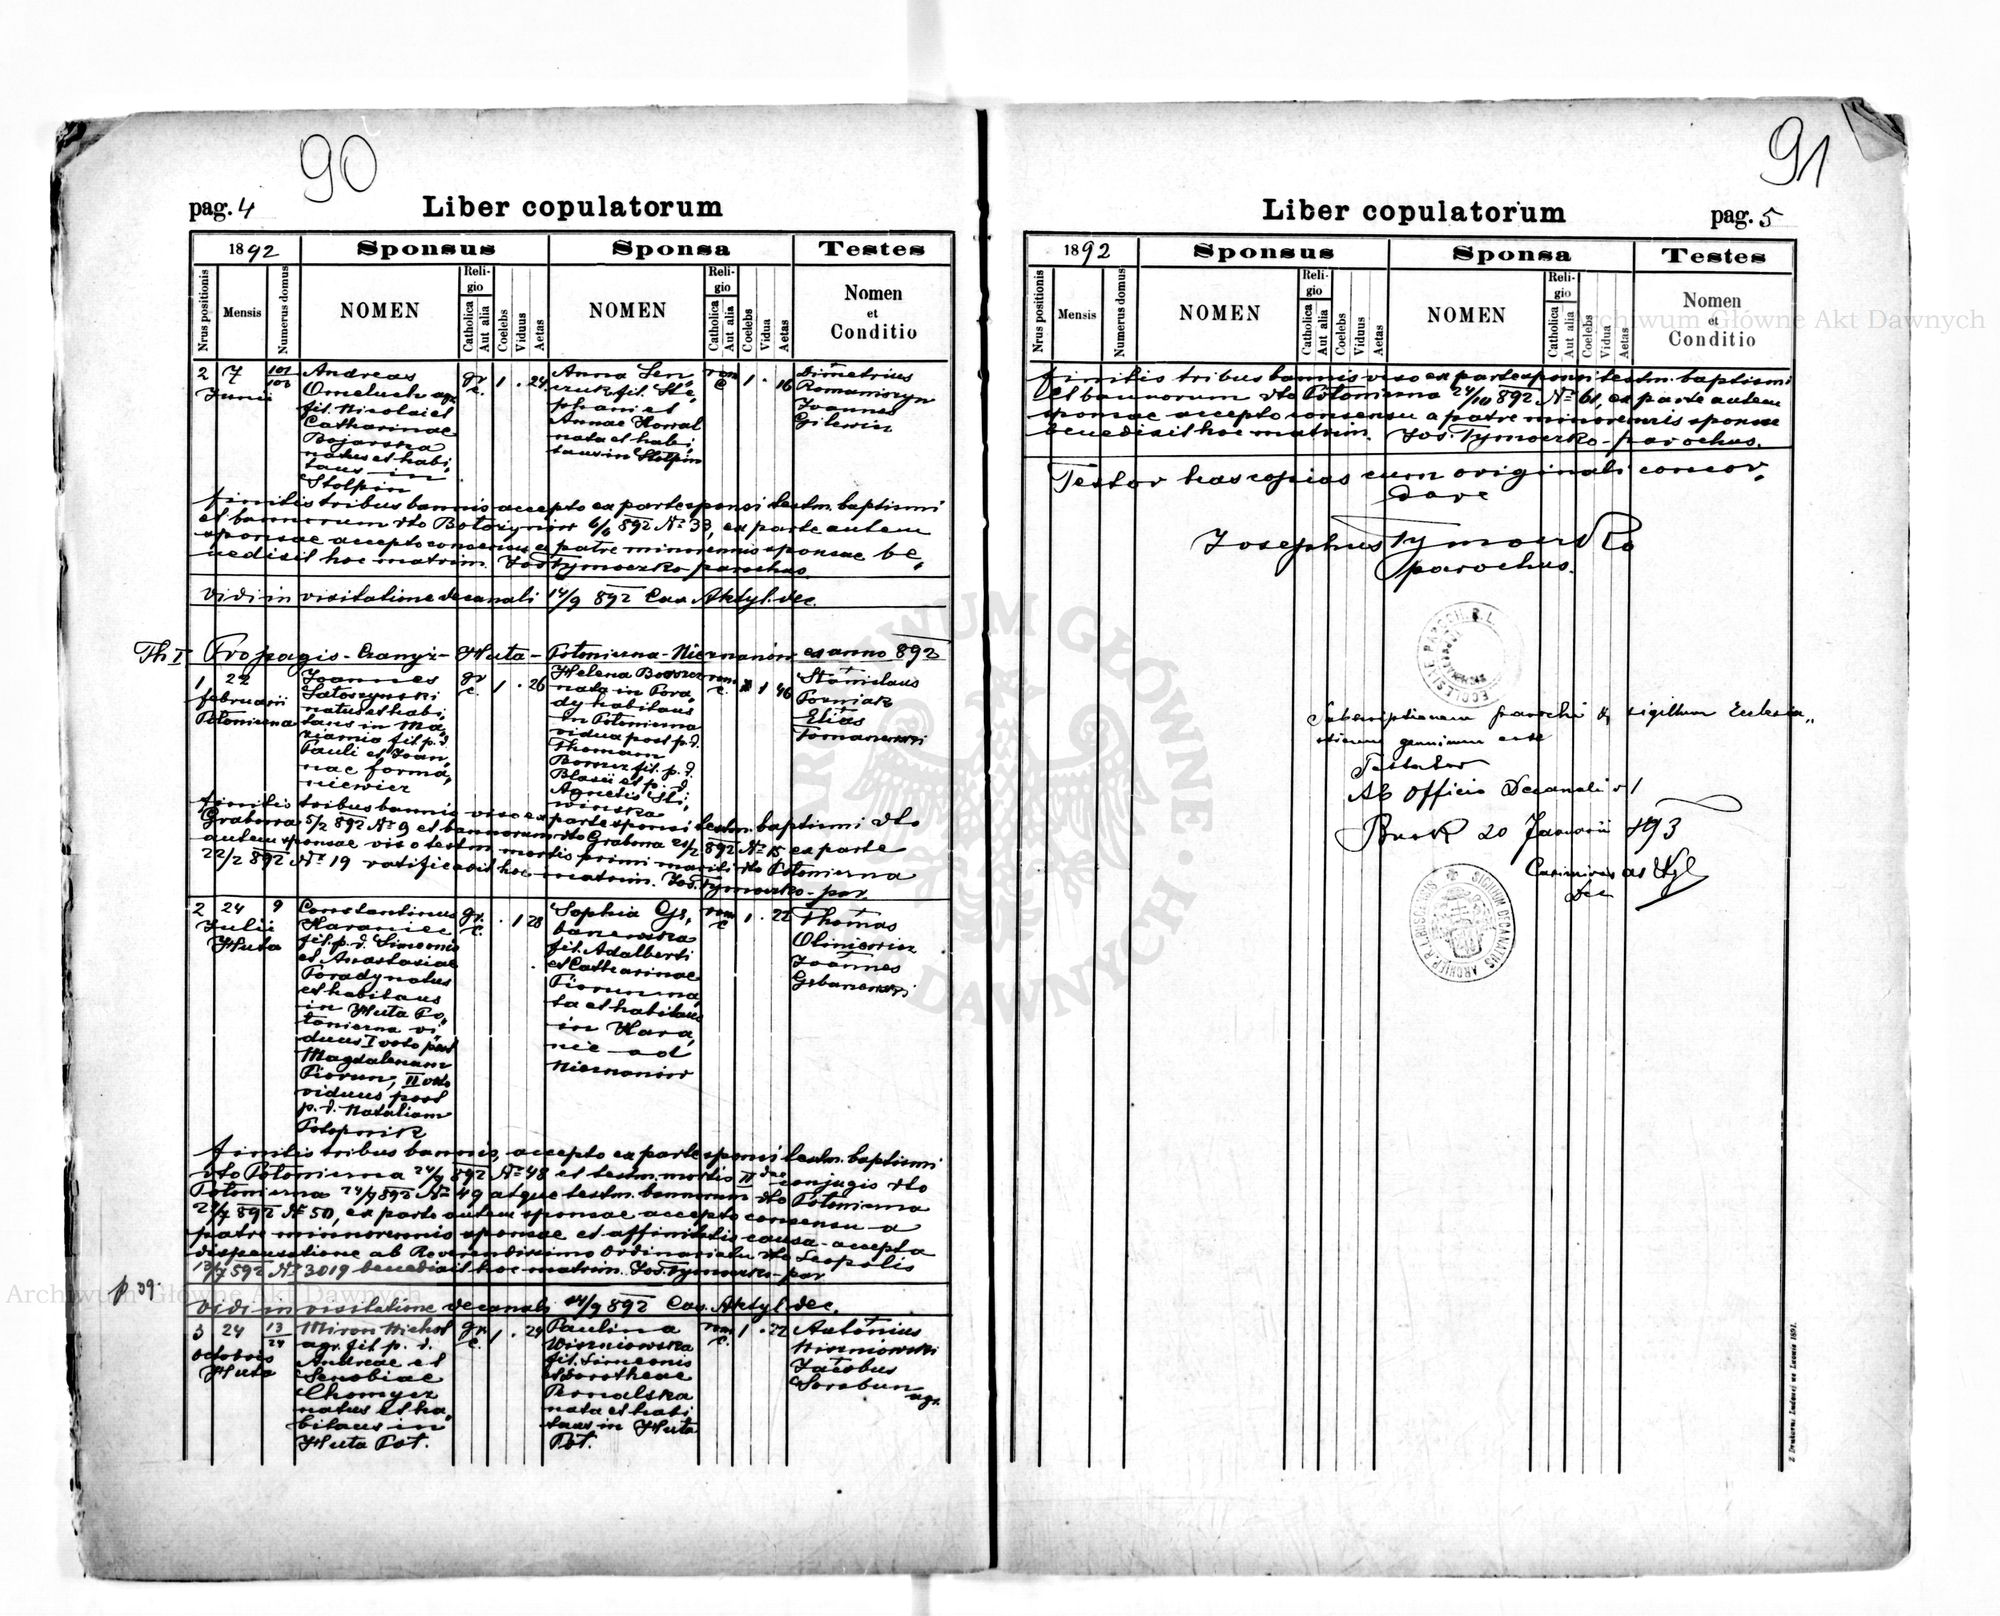 90
pag. 4 Liber copulatorum
1892 Sponsus Sponsa Testes
Nrus positionis Mensis Numerus domus NOMEN Religio Catholica Aut alia Coelebs Viduus Aetas NOMEN Religio Catholica Aut alia Coelebs Vidua Aetas Nomen et Conditio
2 7 Junii 101/103
Andreas
Omeluch agr.
fil. Nicolai et
Catharinae
Bojarska
natus et habi,
tans in
Stolpin
gr. c. 1 . 24
Anna Sen,
czuk fil. Ste,
phani et
Annae Kowal
nata et habi,
tans in Stolpin
rom c 1 . 16
Dimetrius
Romaniszyn
Joannes
Gilewicz
finitis tribus bannis accepto ex parte sponsi testm. baptismi
et bannorum dto 6/6 892 No 33, ex parte autem
sponsae accepto consensu a patre minorennis sponsae be,
nedixit hoc matrim. Jos Tymoczko parochus.
Vidi in visitatione decanali 14/9 892 Cas. Aktyl. dec.
Propagis - Czanyż - Huta - Połonierna - Nieznanów ex anno 892
1 22 februarii Połonierna
Joannes
natus et habi,
tans in
fil. p. d.
Pauli et Joan,
nae
gr c. 1 . 26
Helena
nata in Pora,
dy habitans
in Połonierna
vidua post p. d.
Thomam
fil. p. d.
Blasii et p. d.
Agnetis
rom c. 1 46
Stanislaus
Elias
Tomanewski
finitis tribus bannis viso ex parte sponsi testm. baptismi dto
Grabowa 5/2 892 No 9 et bannorum dto Grabowa 21/2 892 No 15 ex parte
autem sponsae viso testm mortis primi mariti dto Połonierna
22/2 892 No 19 ratificavit hoc matrim. Jos. Tymoczko - par.
2 24 9 Julii Huta
Constantinus
Haraniec
fil. p. d. Simeonis
et Anastasiae
Porady natus
et habitans
in Huta Po,
łonierna vi,
duus I voto post
Magdalenam
Piorun, II voto
viduus post
p. d. Nataliam
gr. c. . 1 28
Sophia Gr,
banewska
fil. Adalberti
et Catharinae
Piorun na,
ta et habitans
in Hara,
nie ad
Nieznanów
rom c 1 . 22
Thomas
Joannes
Grbanewski
finitis tribus bannis, accepto ex parte sponsi testm. baptismi
dto Połonierna 24/7 892 No 48 et testm. mortis II dae conjugis dto
Połonierna 24/7 892 No 49 atque testm. bannorum dto Połonierna
24/7 892 No 50, ex parte autem sponsae accepto consensu a
patre minorennis sponsae et affinitatis causa accepta
dispensatione ab Reverendissimo Ordinariatu dto Leopolis
13/7 592 No 3019 benedixit hoc matrim. Jos. Tymoczko - par
p 39.
Vidi in visitatione decanali 14/9 892 Cas. Aktyl. dec.
3 24 13/24 octobris Huta
Miron
agr. fil p. d.
Andreae et
Senobiae
Chomycz
natus et ha,
bitans in
Huta Poł.
gr. c. 1 . 24
Paulina
Wiszniowska
fil. Simeonis
et Dorotheae
Romalska
nata et habi
tans in Huta
Poł.
rom c. 1 . 22
Antonius
Wiszniowski
Jacobus
Sorobun
agr.
91
Liber copulatorum pag. 5
1892 Sponsus Sponsa Testes
Nrus positionis Mensis Numerus domus NOMEN Religio Catholica Aut alia Coelebs Viduus Aetas NOMEN Religio Catholica Aut alia Coelebs Vidua Aetas Nomen et Conditio
finitis tribus bannis viso ex parte sponsi testm. baptismi
et bannorum dto Połonierna 24/10 892 No 61, ex parte autem
sponsae accepto consensu a patre minorennis sponsae
benedixit hoc matrim. Jos. Tymoczko - parochus.
Testor has copias cum originali concor,
dare
Josephus Tymoczko
parochus.
Subscriptionem parochi & sigillum Ecclesia,,
sticum genuinum esse
Testatur
Ab Officio Decanali r. l.
Busk 20 Januarii 893
Casimirus Aktyl
Dec
SIGILLUM DECANATUS
Archiwum Główne Akt Dawnych
Archiwum Główne Akt Dawnych
ARCHIWUM GŁÓWNE AKT DAWNYCH